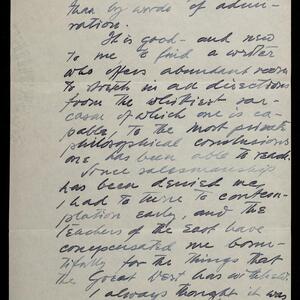 than by words of admi-
ration.
It is good - and new
to me to find a writer
who offers abundant room
to stretch in all directions
from the whitiest sar-
casm of which one is ca-
pable, to the most private
philosophical conclusions
one has been able to reach.
Since salesmanship
has been denied me,
I had to turn to contem-
plation early, and the
teachers of the East have
compensated me boun-
tifully for the things that
the Great West has withheld.
I always thought it was